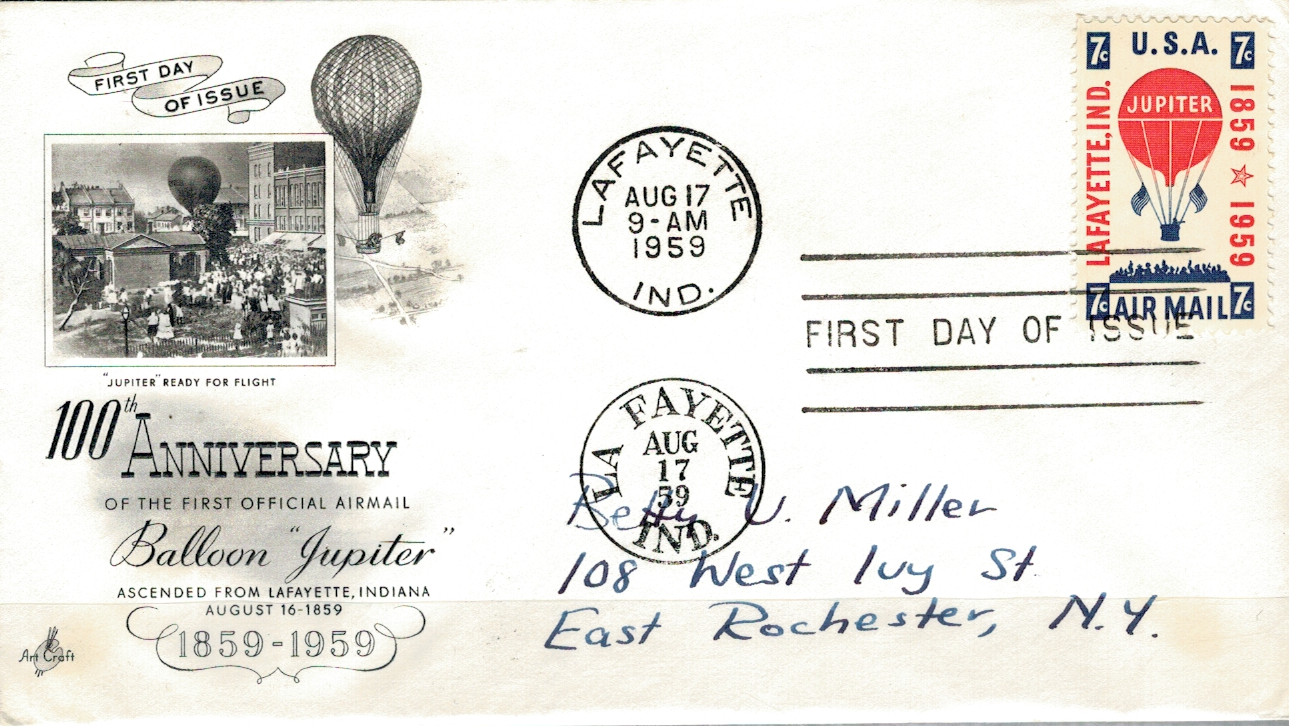 FIRST DAY
OF ISSUE
"JUPITER" READY FOR FLIGHT
100th ANNIVERSARY
OF THE FIRST OFFICIAL AIRMAIL
Balloon "Jupiter"
ASCENDED FROM LAFAYETTE, INDIANA
AUGUST 16-1859
1859-1959
Art Craft
LAFAYETTE
AUG 17
9-AM
1959
IND.
7c U.S.A. 7c
JUPITER
LAFAYETTE, IND.
1859 ☆ 1959
7c AIR MAIL 7c
FIRST DAY OF ISSUE
LA FAYETTE
AUG
17
59
IND.
Betty V. Miller
108 West Ivy St
East Rochester, N.Y.